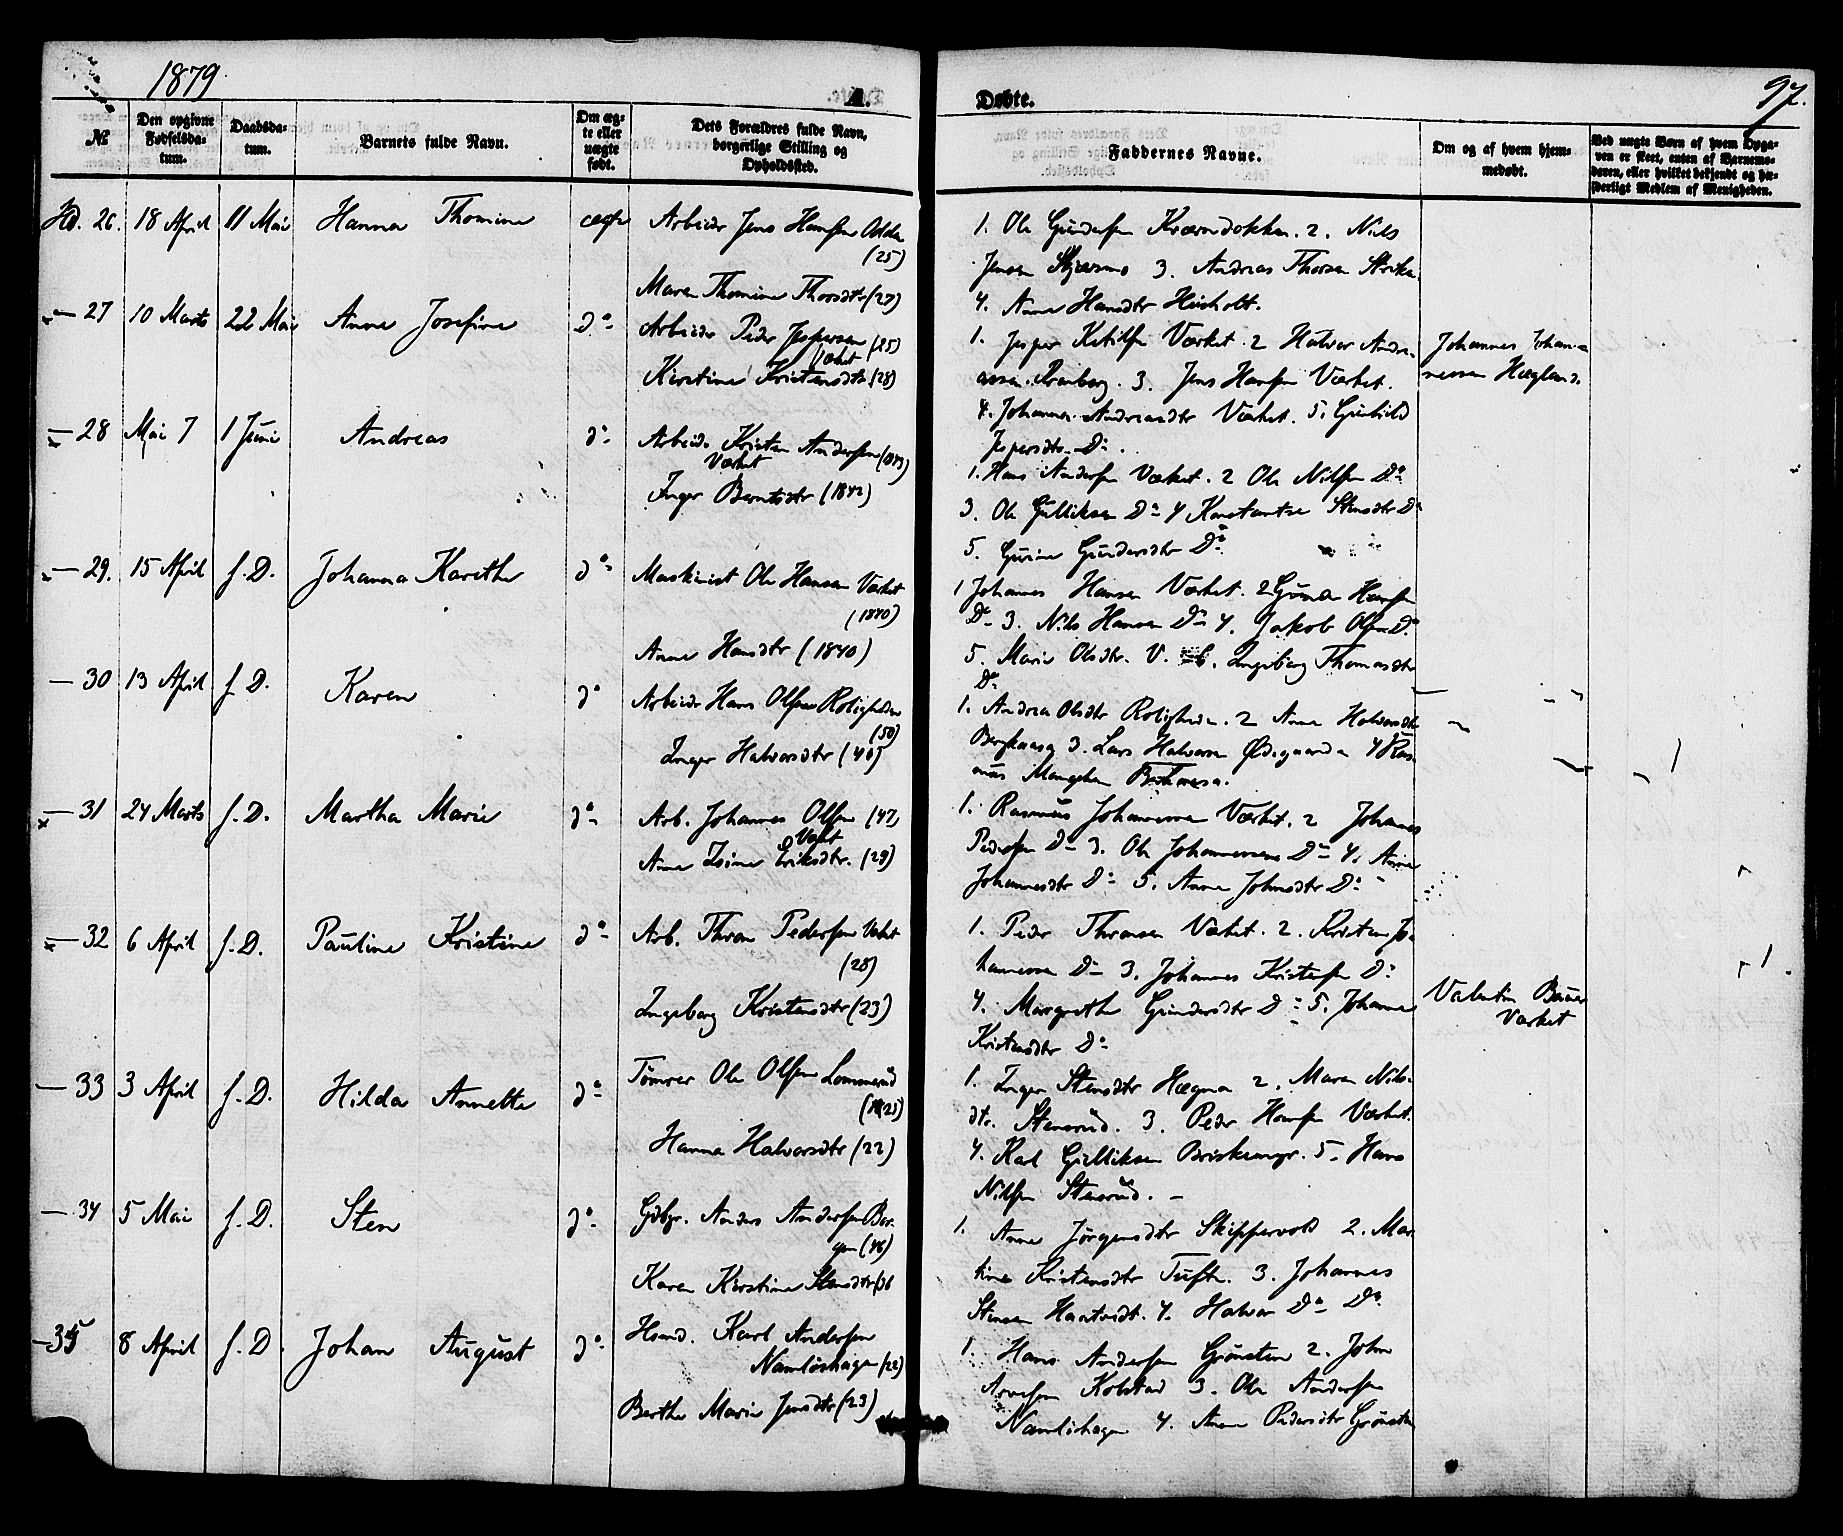 1879.
A.
Døbte.
97.
№
Den opgivne Fødselsdatum.
Daabsdatum.
Barnets fulde Navn.
Om ægte eller uægte født.
Dets Forældres fulde Navn, borgerlige Stilling og Opholdssted.
Faddernes Navne.
Om og af hvem hjemmedøbt.
Ved uægte Børn af hvem Opgaven er skeet, enten af Barnemoderen, eller hvilket bekjendt og hæderligt Medlem af Menigheden.
26. 18 April 11 Mai Hanna Thomine ægte
Arbeider Jens Hansen Odden (25)
Maren Thomine Thorsdtr (27)
1. Ole Gundersen Kværndokken. 2. Nils
Jensen 3. Andreas Thorsen
4. Anne Hansdtr
27 10 Marts 22 Mai Anne Josefine do
Arbeider Peder Jespersen (25)
Værket
Kirstine Kristensdtr (28)
1. Jesper Ketilsen Værket. 2 Halvor Andre-
assen 3. Jens Hansen Værket.
4. Johanne Andreasdtr Værket. 5. Gunhild
Jespersdtr Do.
Johannes Johan-
nessen Hægland.
28 Mai 7 1 Juni Andreas do
Arbeid. Kristen Andersen (1843)
Værket
Inger Berntsdtr (1842)
1. Hans Andersen Værket. 2 Ole Nilsen Do
3. Ole Gulliksen Do 4 Konstantse Stensdtr Do
5. Gurine Gundersdtr Do
29. 15 April s. D. Johanna Karethe do
Maskinist Ole Hansen Værket
(1840)
Anne Hansdtr (1840)
1 Johannes Hansen Værket. 2 Hansen
Do 3. Nils Hansen Do 4. Jakob Olsen Do
5. Marie Olsdtr. V. 6. Ingeborg Thomasdtr
Do
30 13 April s. D. Karen do
Arbeider Hans Olsen Roligheden
(50)
Inger Halvorsdtr (40)
1. Andrea Olsdtr Roligheden. 2 Anne Halvorsdtr
3. Lars Halvorsen Ødegaarden 4 Ras-
mus
31 24 Marts s. D. Martha Marie do
Arb. Johannes Olsen (47)
Værket
Anne Eriksdtr. (29)
1. Rasmus Johannessen Værket. 2 Johannes
Pedersen Do 3. Ole Johannessen Do 4. Anne
Johannesdtr Do 5. Anne Johnsdtr Do
32 6 April s. D. Pauline Kristine do
Arb. Thron Pedersen Værket
(28)
Ingeborg Kristensdtr (23)
1. Peder Thronsen Værket. 2. Kristen Jo-
hannessen Do 3. Johannes Kristensen Do
4. Margrethe Gundersdtr Do 5. Johanne
Kristensdtr Do
Valentin Bauer
Værket
33 3 April s. D. Hilda Annette do
Tømrer Ole Olsen Lommerud
(25)
Hanna Halvorsdtr (22)
1. Inger Stensdtr Hægna 2. Maren Nils-
dtr. Stensrud. 3. Peder Hansen Værket.
4. Karl Gulliksen 5. Hans
Nilsen Stensrud.
34 5 Mai s. D. Sten do
Gdbgr. Anders Andersen Ber-
gan (46)
Karen Kirstine Stensdtr (36
1. Anne Jørgensdtr Skippervold 2. Mar-
tine Kristensdtr Tufte. 3. Johannes
Stensen Haatvedt. 4. Halvor Do Do
35 8 April s. D. Johan August do
Hsmd. Karl Andersen
Namløshagen (22)
Berthe Marie Jensdtr (23)
1. Hans Andersen Grønsten 2. John
Arnesen Kolstad 3. Ole Andersen
Namløshagen 4. Anne Pedersdtr Grønsten